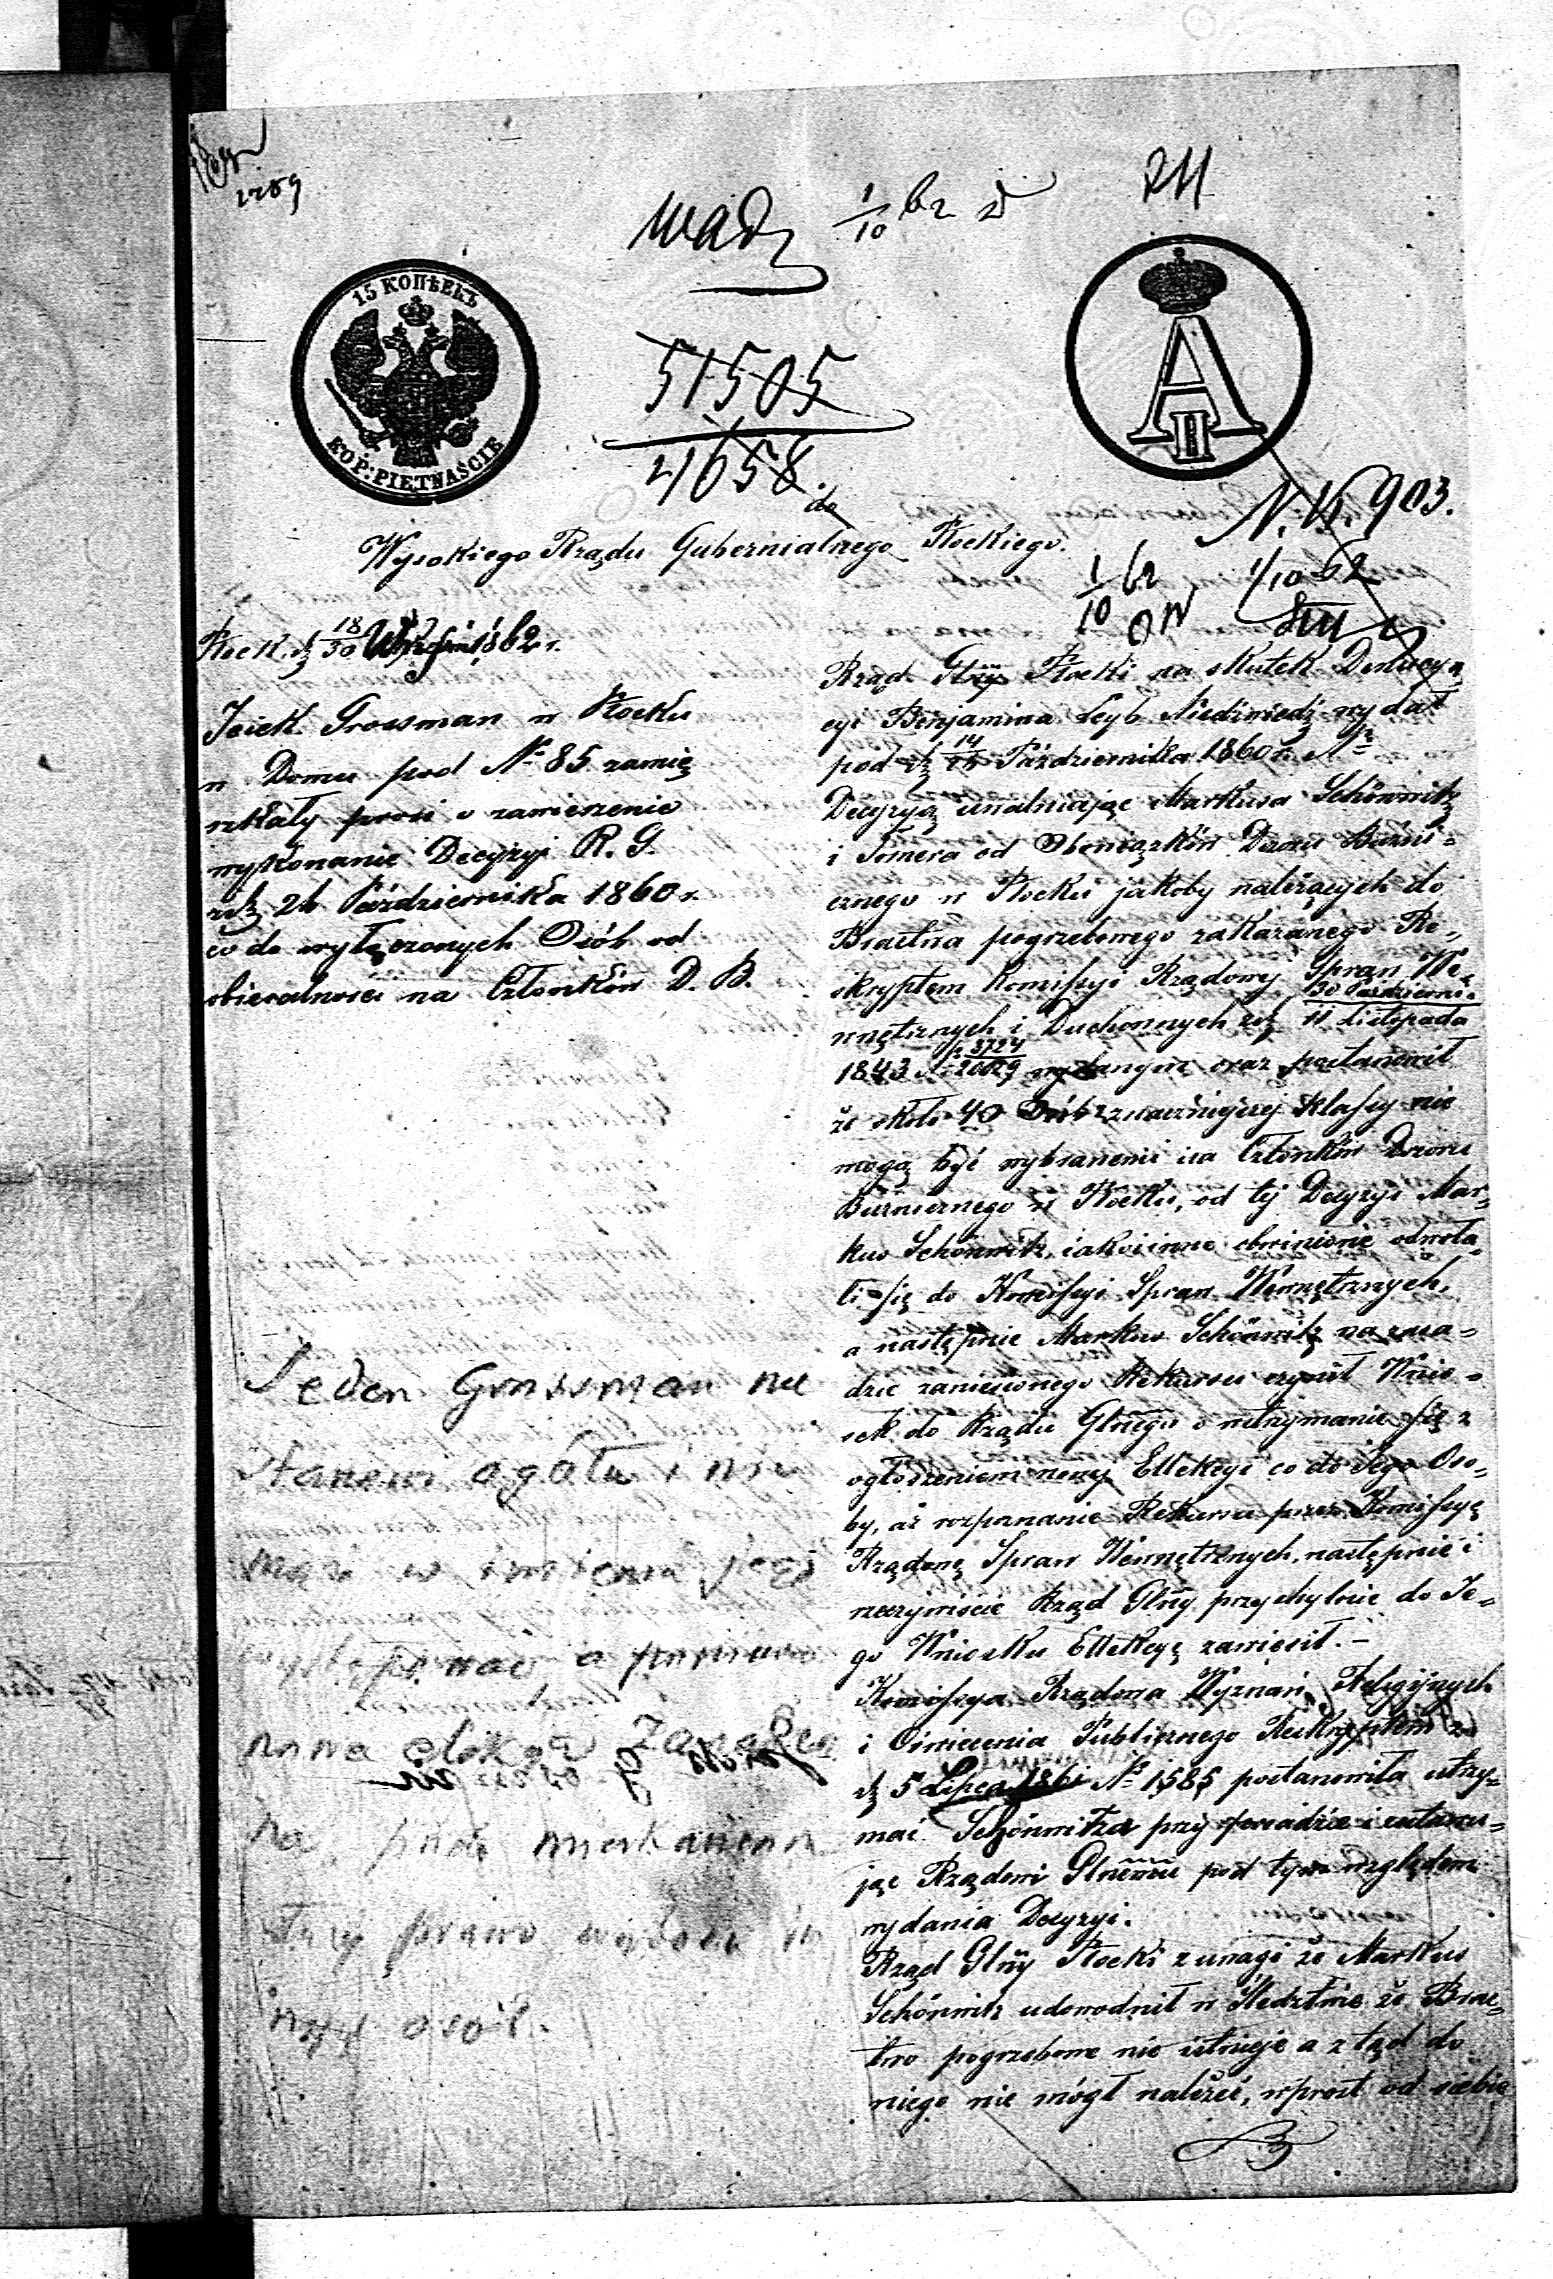 2289
wad
1/10 br
211
15 КОПѢЕКЪ
КОР: PIĘTNAŚCIE
A II
51505
41658.
N. 15.903.
do
Wysokiego Rządu Gubernialnego Płockiego.
1/10 br
1/10 62
Płock d. 18/30 Września 1862 r.
Icick Grossman w Płocku
w Domu pod No 85 zamię
szkały prosi o zawieszenie
wykonanie Decyzyi R. G.
z d. 26 Października 1860 r.
co do wyłączonych Osób od
obieralności na Członków D. B.
Jeden Grossman nie
stanowi ogółu i nie
może w imieniu jego
występować a ponieważ
nowa elekcya
prawo wyboru in
nych osób.
Rząd Glny Płocki na skutek Denucya
cyi Benjamina Leyb Niedźwiedź wydał
pod d. 14 Października 1860 r. No
Decyzyą uwalniając Markusa Schönwitz
i Tomera od Obowiązków Dozoru Bóżni=
cznego w Płocku jakoby należących do
Bractwa pogrzebowego zakazanego Re=
skryptem Komissyi Rządowej Spraw We=
wnętrznych i Duchownych z d. 30 Październi./11 Listopada
1843 No 3724/20029 wydanym oraz postanowił
że około 40 Osób znaczniejszej klassy nie
mogą być wybranemi na Członków Dozoru
Bóźnicznego w Płocku, od tej Decyzyi Mar=
kus Schönwitz, jako i inne obwinione odwoła=
li się do Komissyi Spraw Wewnętrznych,
a następnie Markus Schönwitz na zasa=
dzie zaniesionego Rekursu czynił Wnio=
sek do Rządu Glnego o wstrzymanie się z
ogłoszeniem nowej Ellekcyi co do Jego Oso=
by, aż rozpoznanie Rekursu przez Komissyę
Rządową Spraw Wewnętrznych, następnie i
rzeczywiście Rząd Glny przychylnie do Je=
go Wniosku Ellekcyę zawiesił.—
Komissya Rządowa Wyznań Religijnych
i Oświecenia Publicznego Reskryptem z
d. 5 Lipca 1861 No 1585 postanowiła utrzy=
mać Schönwitza przy posadzie i
jąc Rządowi Glnemu pod tym względem
wydania Decyzyi.
Rząd Glny Płocki z uwagi że Markus
Schönwitz udowodnił w Śledztwie że Brac=
two pogrzebowe nie istnieje a ztąd do
niego nie mógł należeć, wprost od siebie